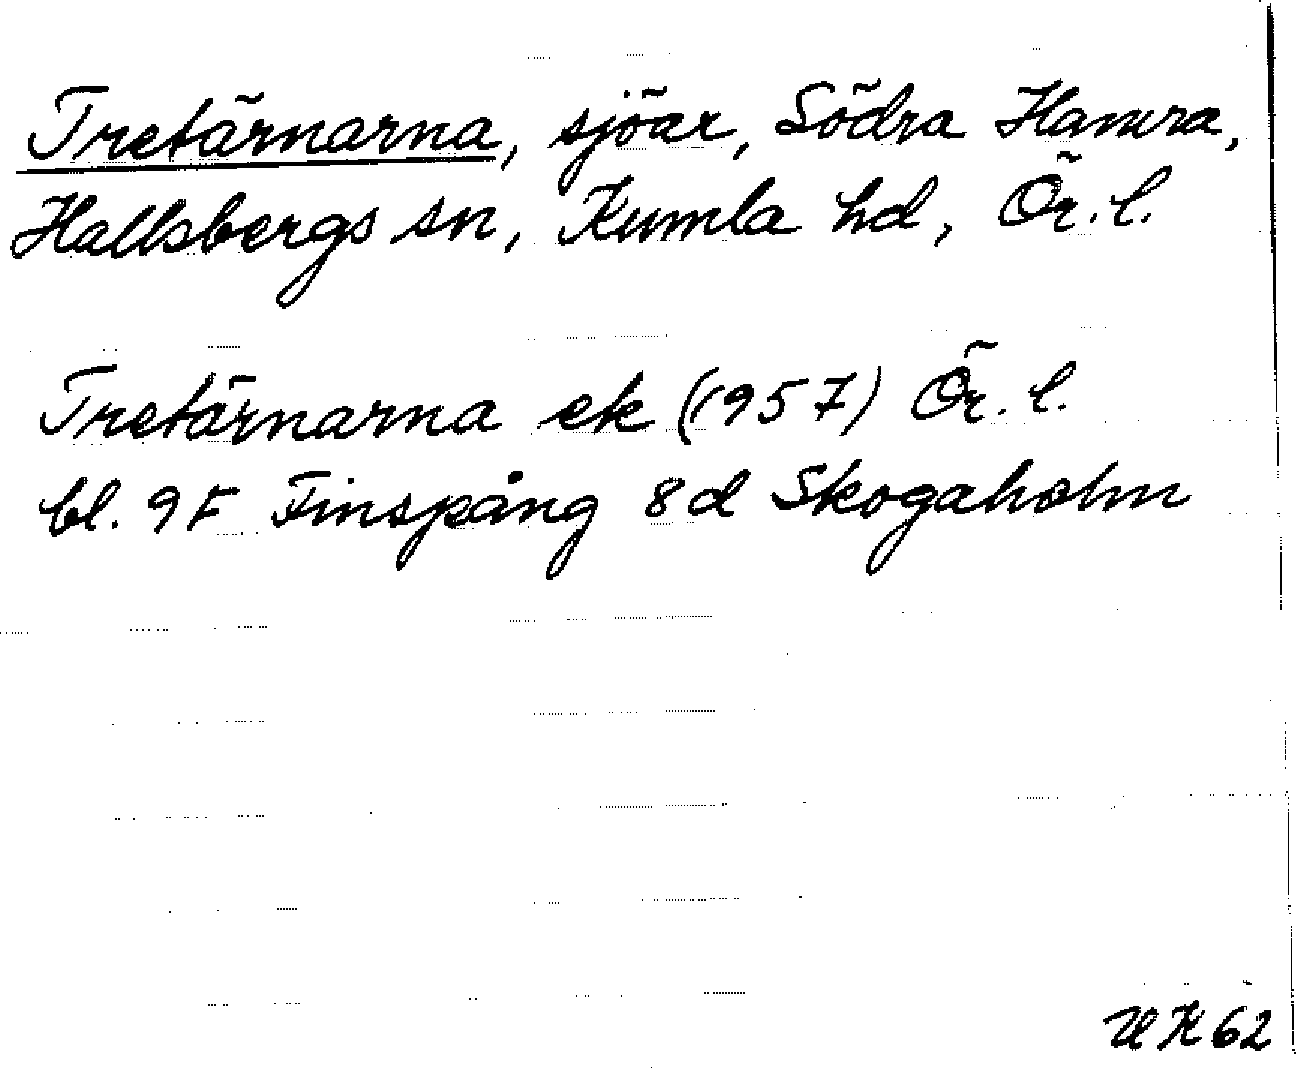 Tretärnarna, sjöar, Södra Hamra,
Hallsbergs sn, Kumla hd, Ör. l.
Tretärnarna ek (1957) Ör. l.
bl. 9F Finspång 8d Skogaholm
UK 62